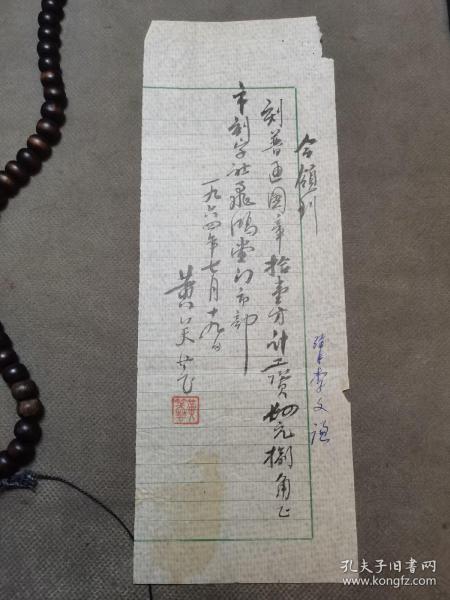 今領到
刻普通图章拾壹方计工资肆元捌角正
市刻字社飛鴻堂门市部
一九六四年七月十九日
黄
李文
孔夫子旧书网
www.kongfz.com